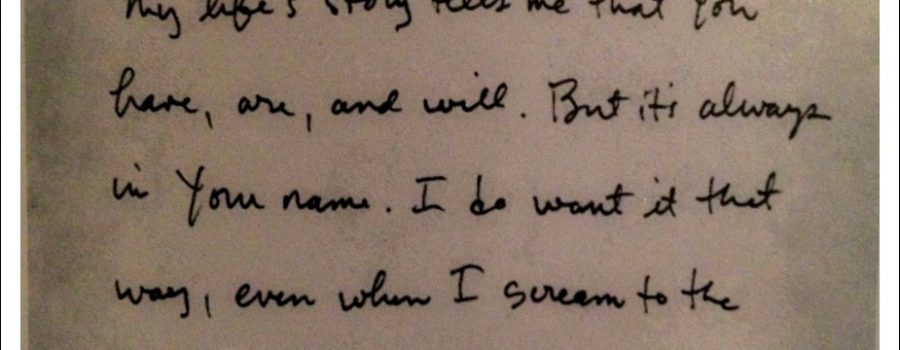 My life's story tells me that You
have, are, and will. But it's always
in Your name. I do want it that
way, even when I scream to the